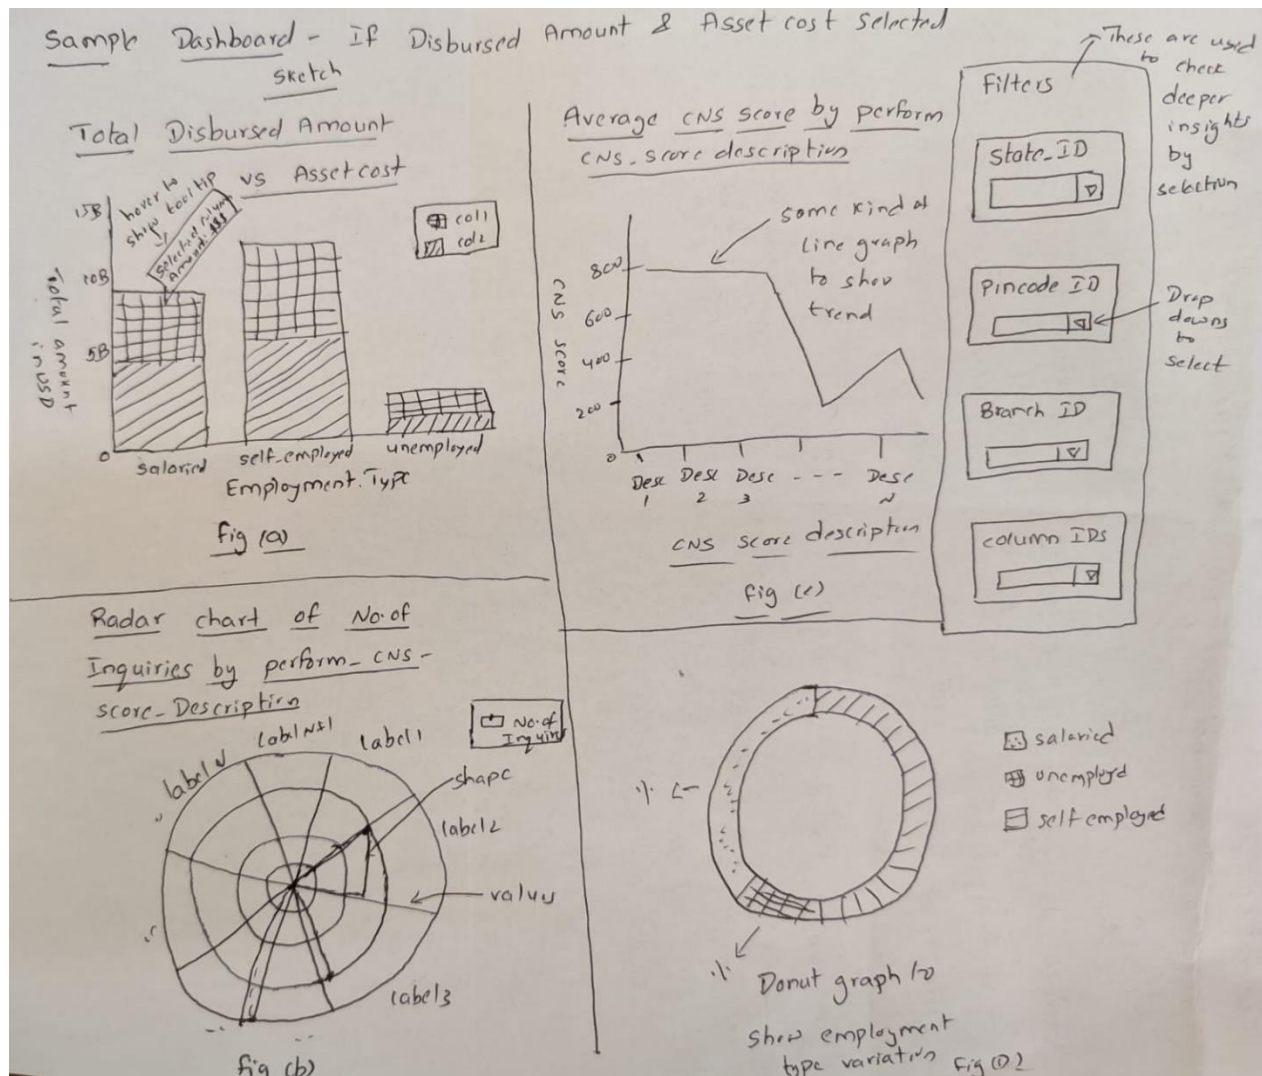 Sample Dashboard - If Disbursed Amount & Asset cost selected
sketch
Total Disbursed Amount
vs Asset cost
hover to
show tooltip
selected column
Amount: $$$
col1
col2
15B
10B
5B
0
Total amount
in USD
salaried
self-employed
unemployed
Employment Type
fig (a)
Average CNS score by perform
CNS-score description
some kind of
line graph
to show
trend
CNS score
800
600
400
200
0
Desc
1
Desc
2
Desc
3
- - -
Desc
N
CNS score description
fig (c)
Filters
These are used
to check
deeper
insights
by
selection
State_ID
Pincode ID
Drop
downs
to
select
Branch ID
column IDs
Radar chart of No.of
Inquiries by perform-CNS-
score-Description
No.of
Inquiri
label N
label N+1
label1
label2
label3
shape
values
fig (b)
%
%
salaried
unemployd
self employed
Donut graph to
show employment
type variation
fig (D)